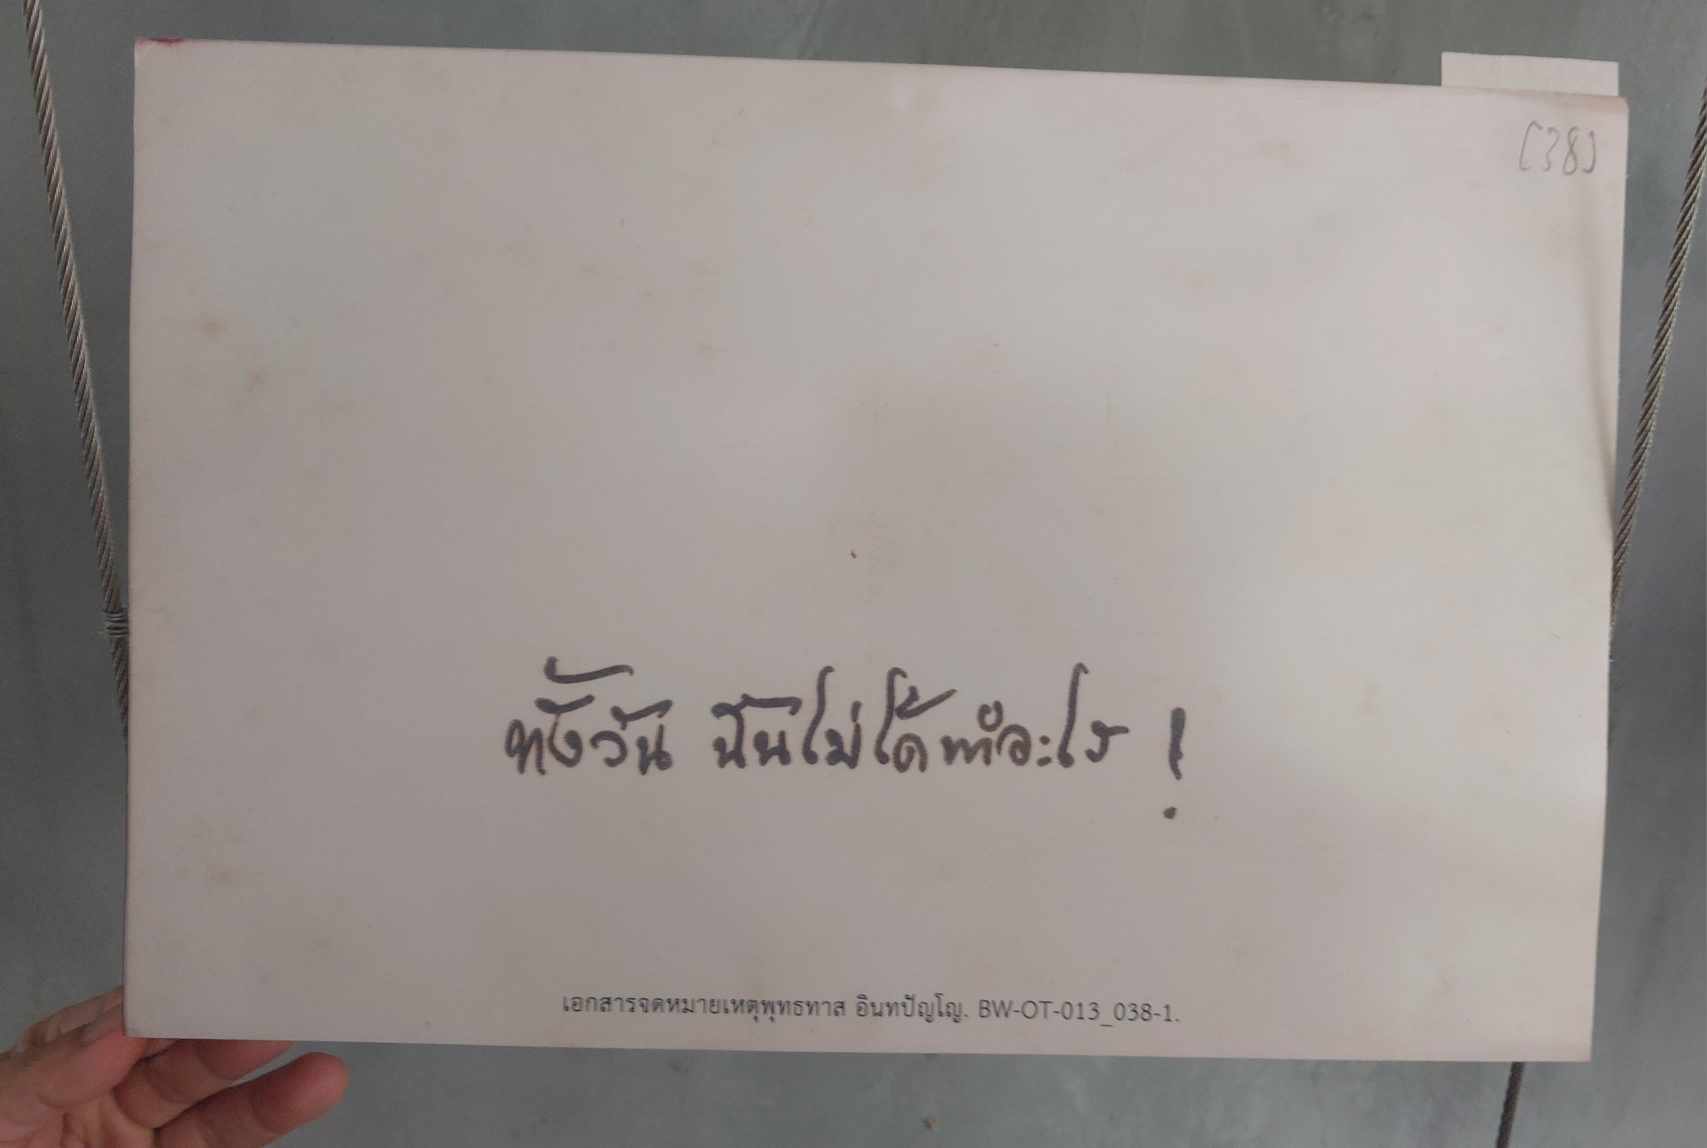 [38]
ทั้งวัน ฉันไม่ได้ทำอะไร !
เอกสารจดหมายเหตุพุทธทาส อินทปัญโญ. BW-OT-013_038-1.